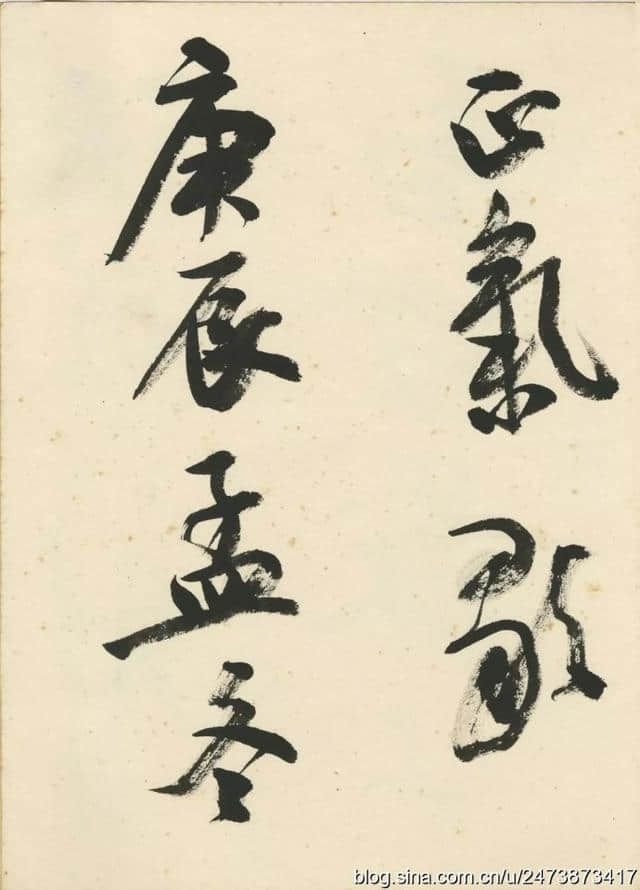 正氣歌
庚辰孟冬
blog.sina.com.cn/u/2473873417